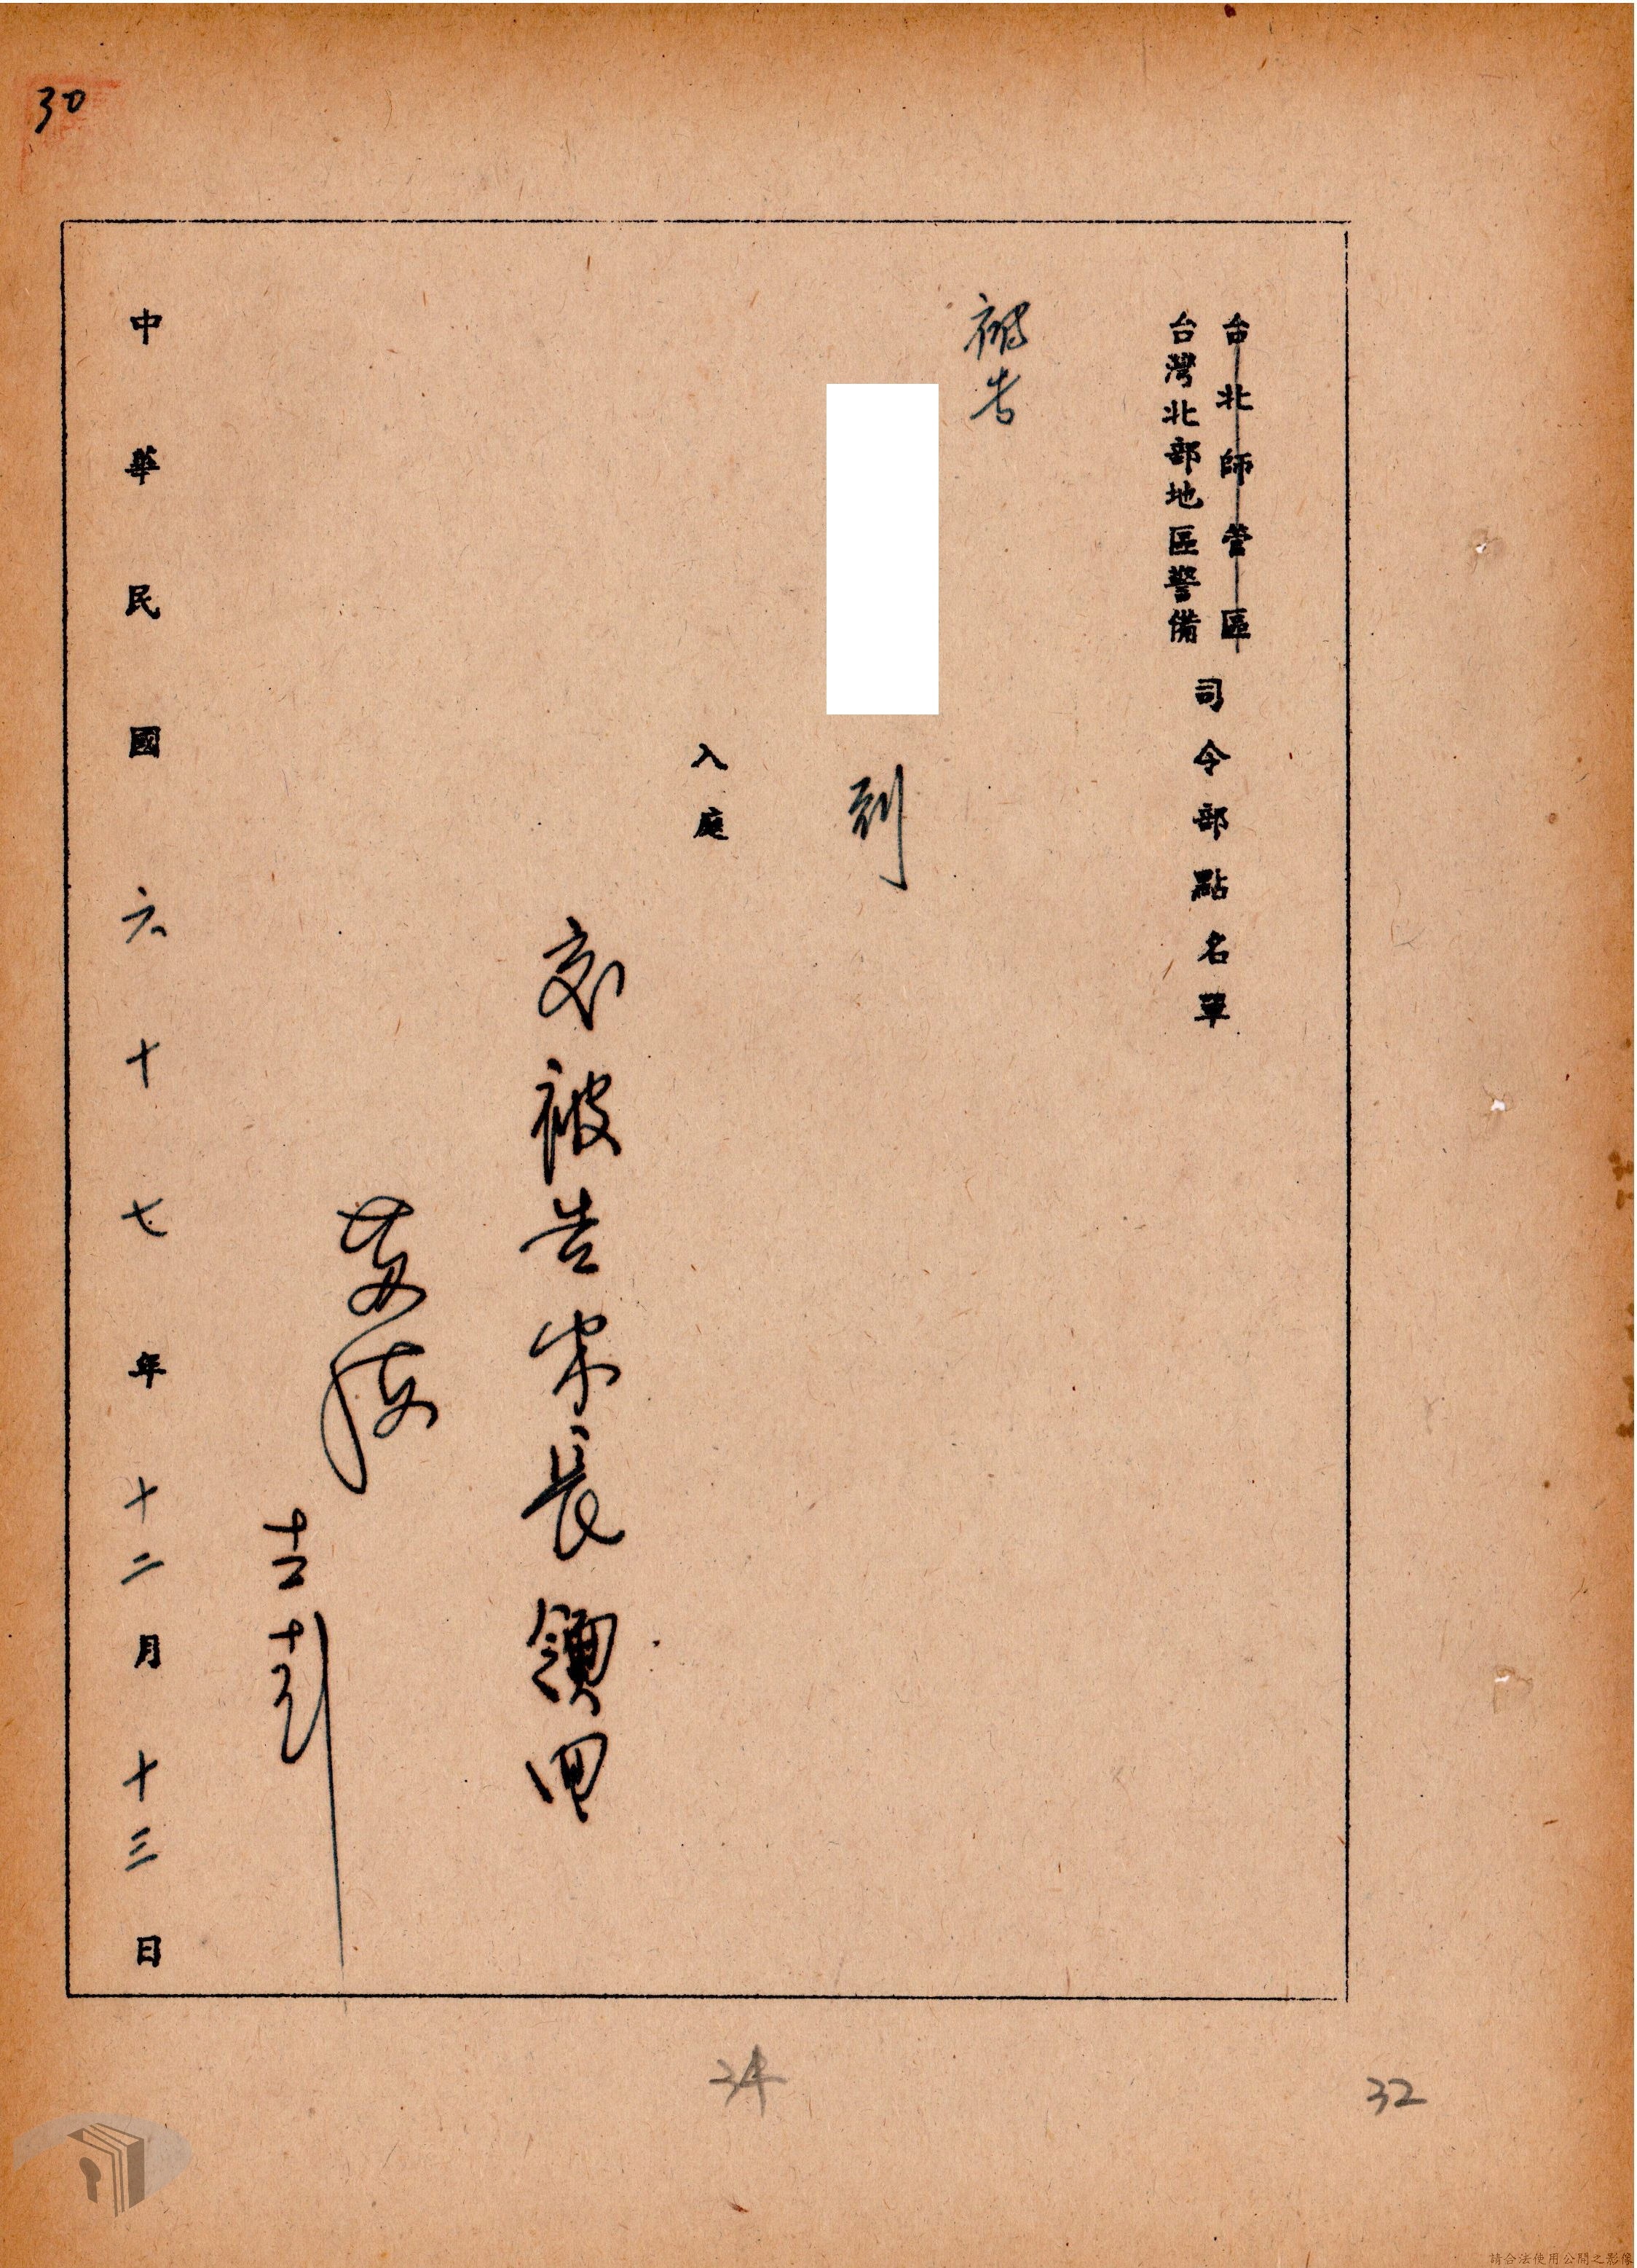 30
台北師管區
台灣北部地區警備
司令部點名單
被告
到
入庭
交被告家長領回
十二
中華民國六十七年十二月十三日
34
32
請合法使用公開之影像